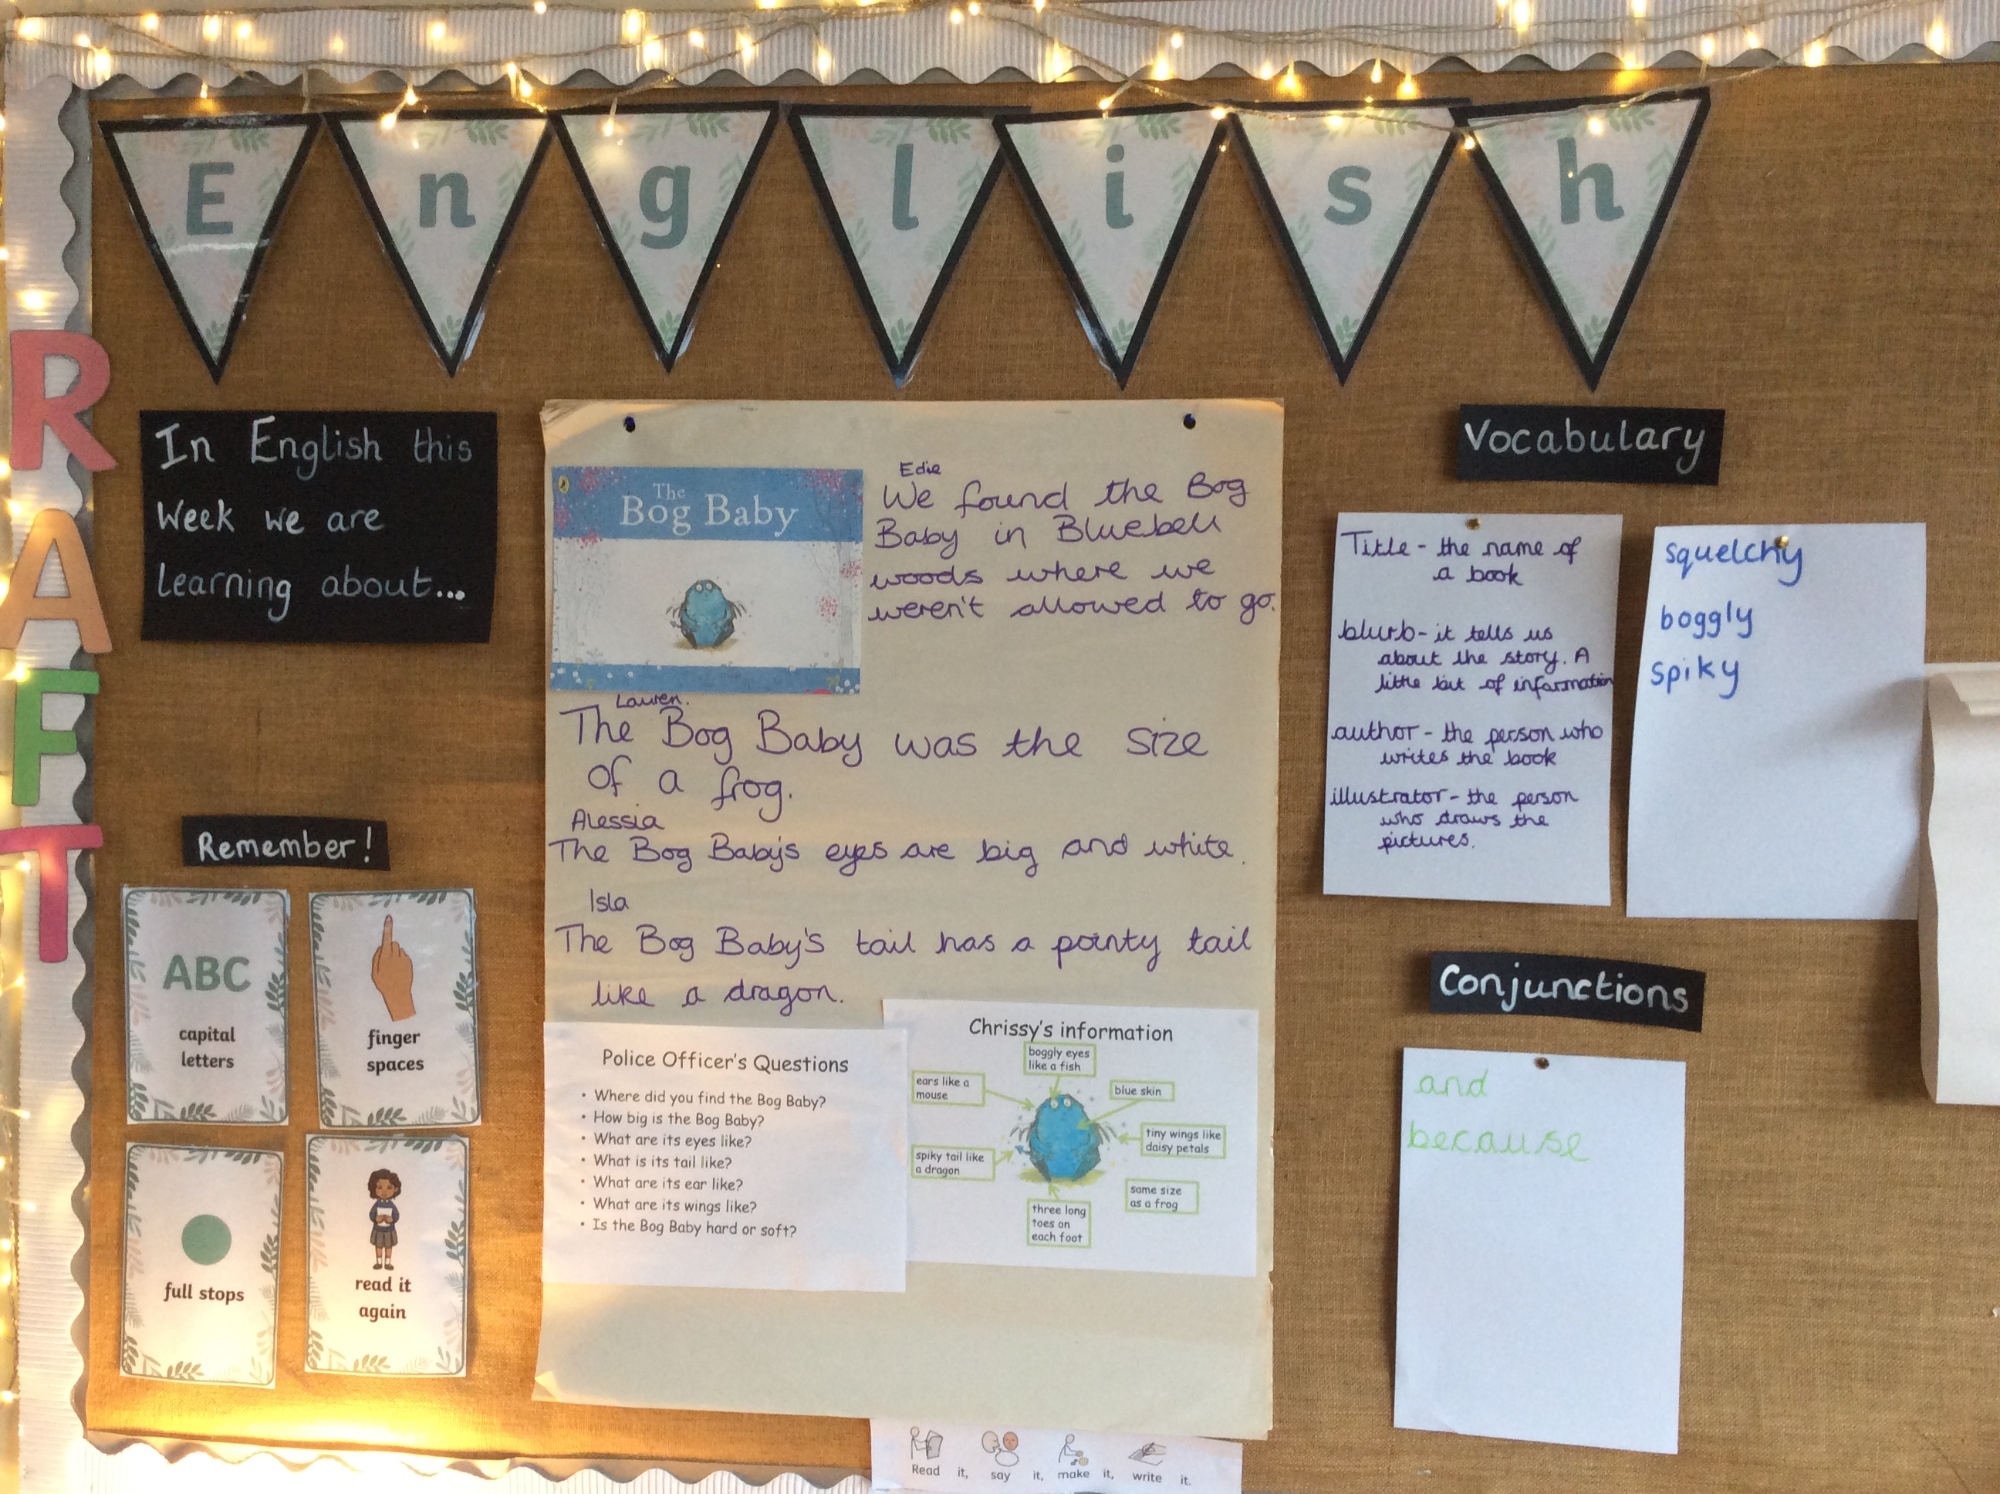 English
RAFT
In English this
Week we are
learning about...
Remember!
ABC
capital
letters
finger
spaces
full stops
read it
again
The
Bog Baby
Edie
We found the Bog
Baby in Bluebell
woods where we
weren't allowed to go.
Lauren.
The Bog Baby was the size
of a frog.
Alessia
The Bog Baby's eyes are big and white.
Isla
The Bog Baby's tail has a pointy tail
like a dragon.
Police Officer's Questions
• Where did you find the Bog Baby?
• How big is the Bog Baby?
• What are its eyes like?
• What is its tail like?
• What are its ear like?
• What are its wings like?
• Is the Bog Baby hard or soft?
Chrissy's information
boggly eyes
like a fish
ears like a
mouse
blue skin
tiny wings like
daisy petals
spiky tail like
a dragon
same size
as a frog
three long
toes on
each foot
Read it, say it, make it, write it.
Vocabulary
Title - the name of
a book
blurb - it tells us
about the story. A
little bit of information
author - the person who
writes the book
illustrator - the person
who draws the
pictures.
squelchy
boggly
spiky
Conjunctions
and
because